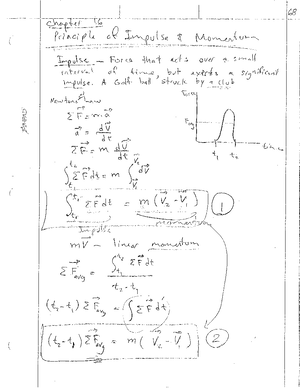 68
Chapter 16
Principle of Impulse & Momentum
Impulse — Force that acts over a small
interval of time, but exerts a significant
impulse. A Golf ball struck by a club
Newton's 2nd law
ΣF⃗ = m a⃗
a⃗ = dV⃗/dt
ΣF⃗ = m dV⃗/dt
∫_{t₁}^{t₂} ΣF⃗ dt = m ∫_{V⃗₁}^{V⃗₂} dV⃗
∫_{t₁}^{t₂} ΣF⃗ dt = m (V⃗₂ - V⃗₁) ①
Impulse momentum
mV⃗ — linear momentum
ΣF⃗avg = ∫_{t₁}^{t₂} ΣF⃗ dt / t₂ - t₁
(t₂ - t₁) ΣF⃗avg = ∫ ΣF⃗ dt
(t₂ - t₁) ΣF⃗avg = m (V⃗₂ - V⃗₁) ②
Favg
t₁ t₂